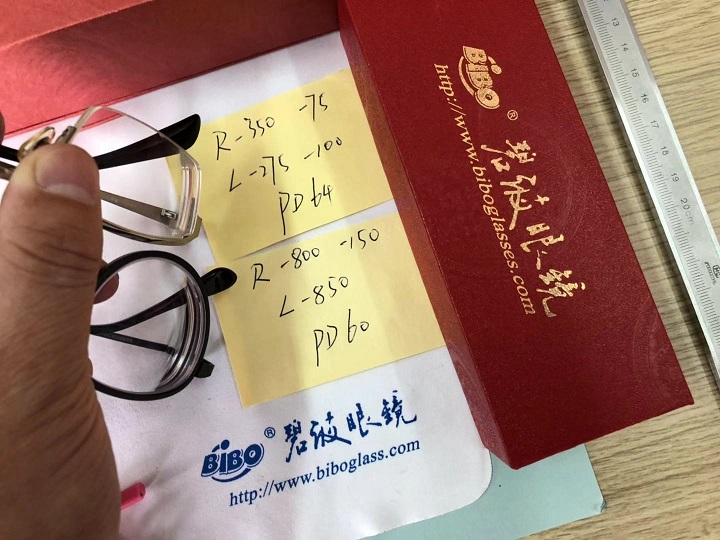 R -350 -75
L -275 -100
PD 64
R -800 -150
L -850
PD 60
BIBO ®
碧波眼镜
http://www.biboglasses.com
BIBO ® 碧波眼镜
http://www.biboglass.com
13
14
15
16
17
18
19
20cm